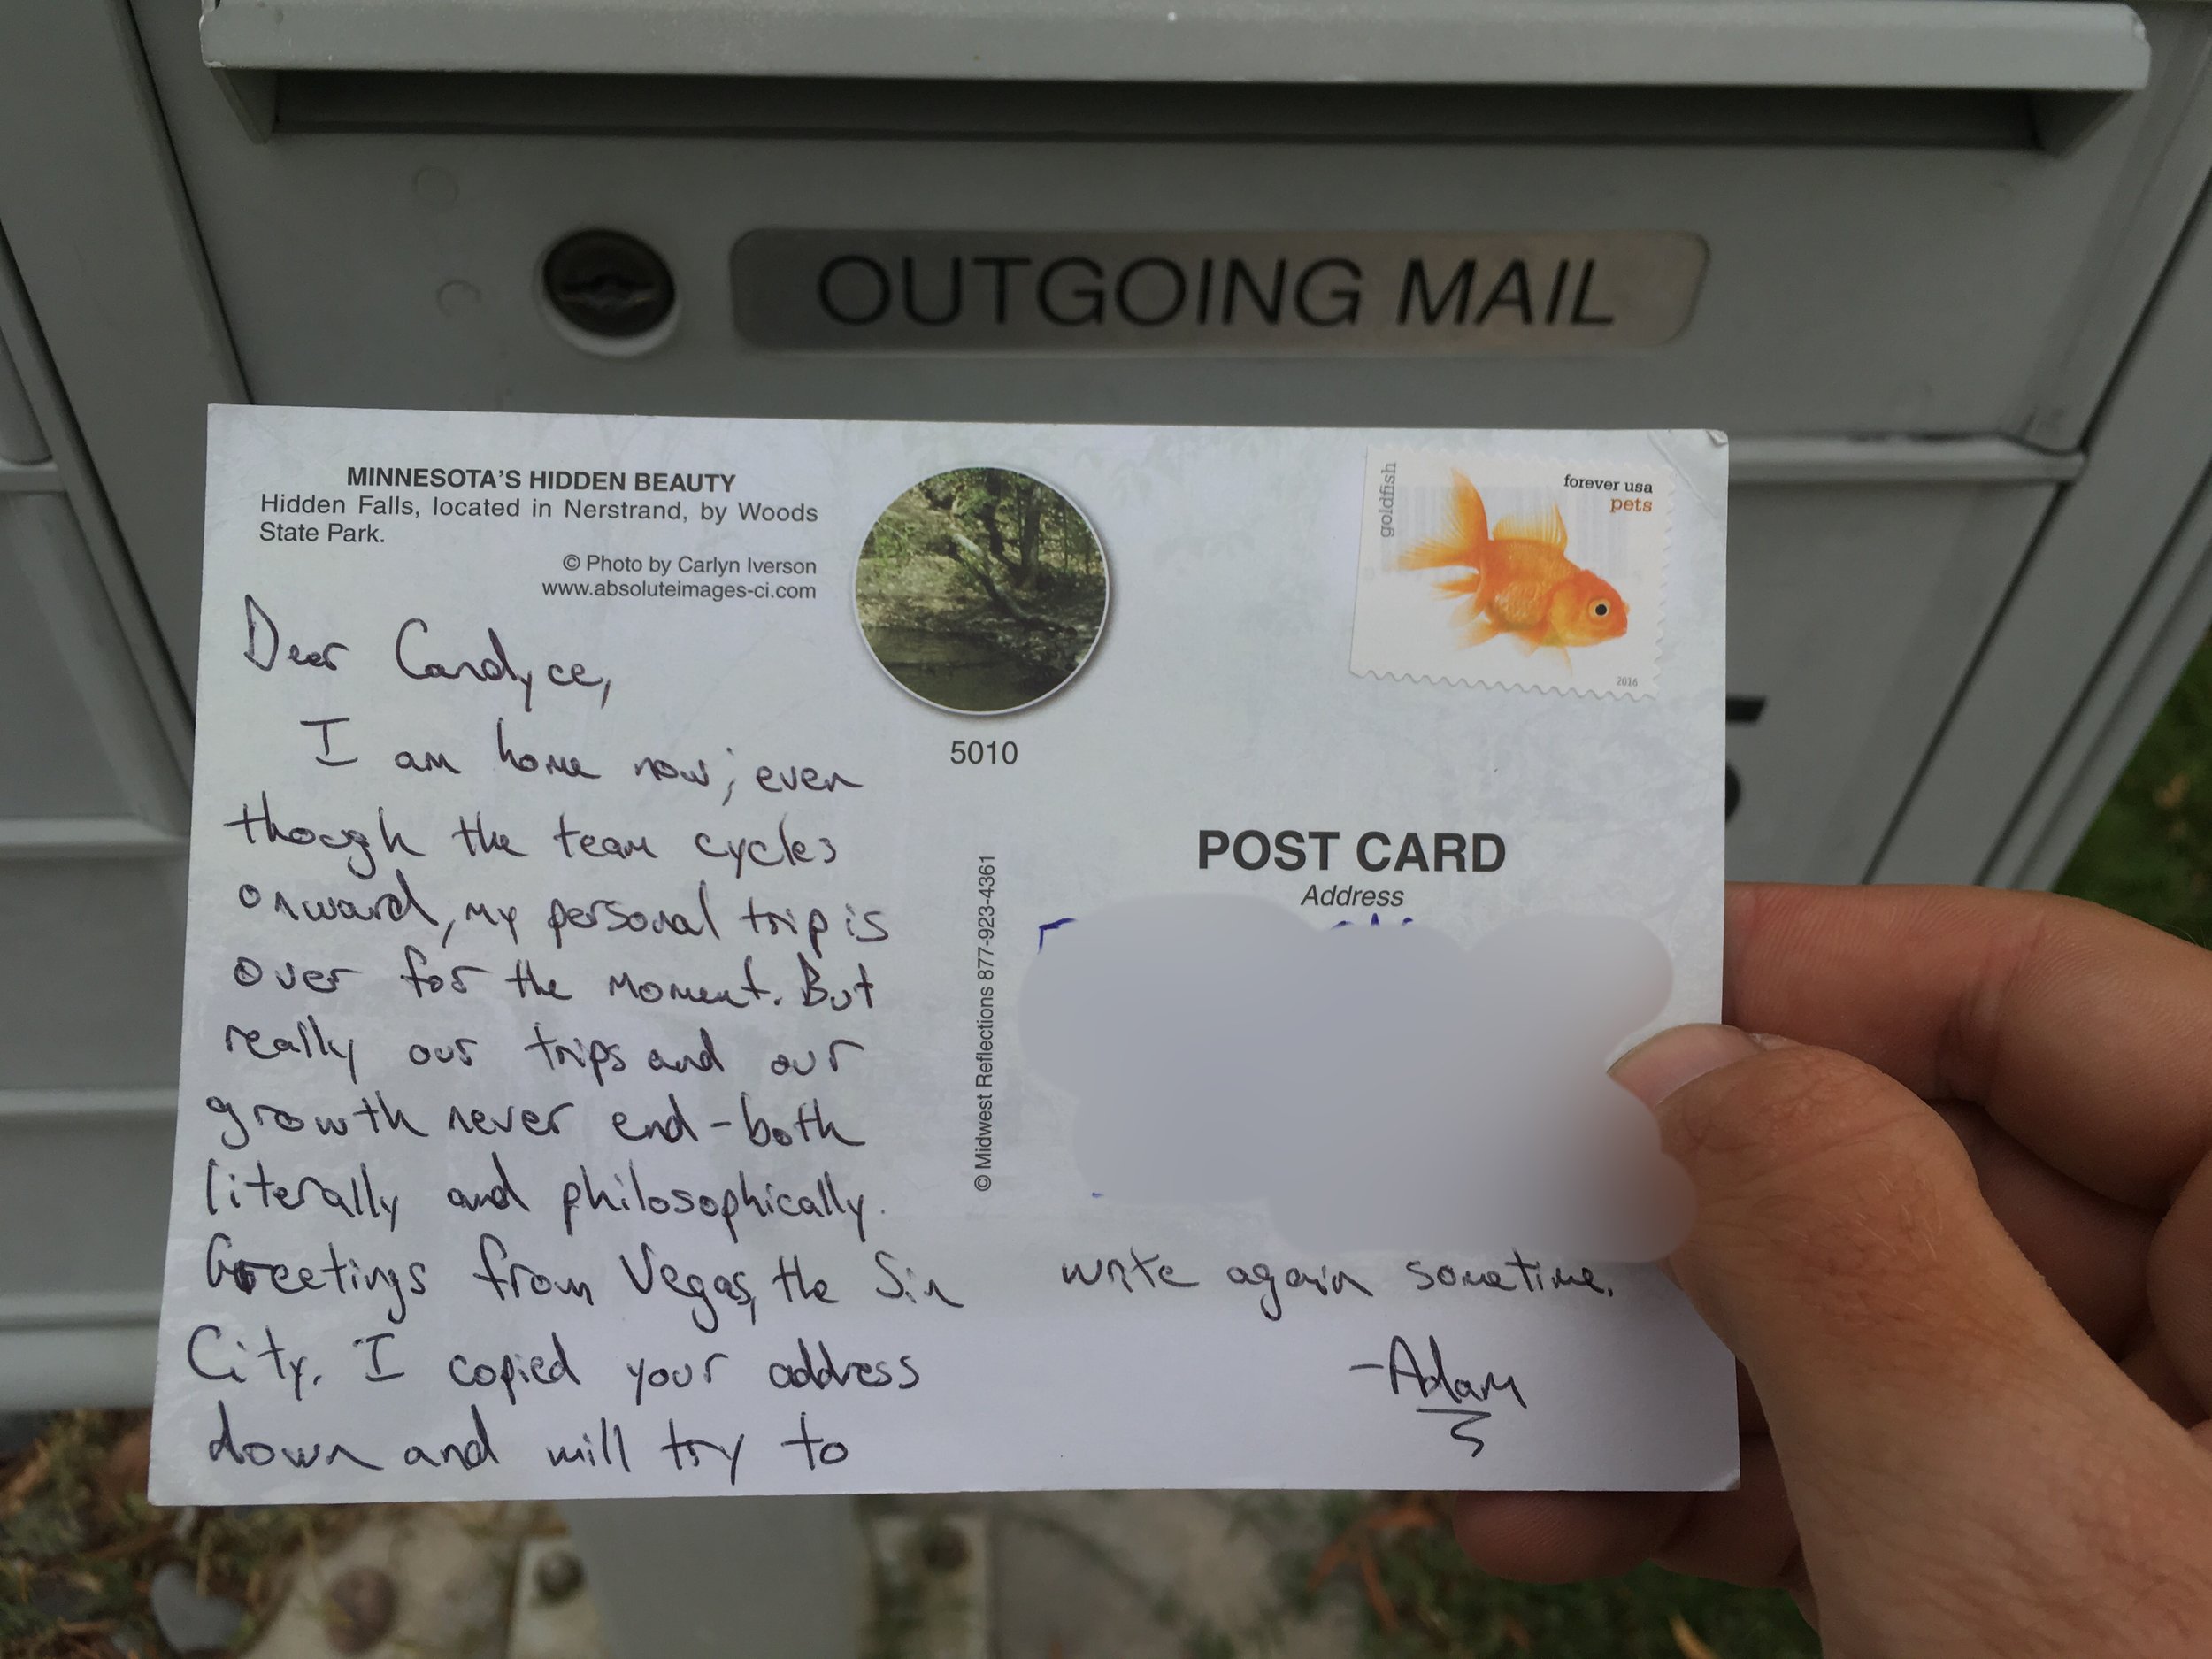 OUTGOING MAIL
MINNESOTA'S HIDDEN BEAUTY
Hidden Falls, located in Nerstrand, by Woods
State Park.
© Photo by Carlyn Iverson
www.absoluteimages-ci.com
5010
goldfish
forever usa
pets
2016
Dear Candyce,
I am home now; even
though the team cycles
onward, my personal trip is
over for the moment. But
really our trips and our
growth never end - both
literally and philosophically.
Greetings from Vegas, the Sin
City. I copied your address
down and will try to
© Midwest Reflections 877-923-4361
POST CARD
Address
write again sometime.
-Adam